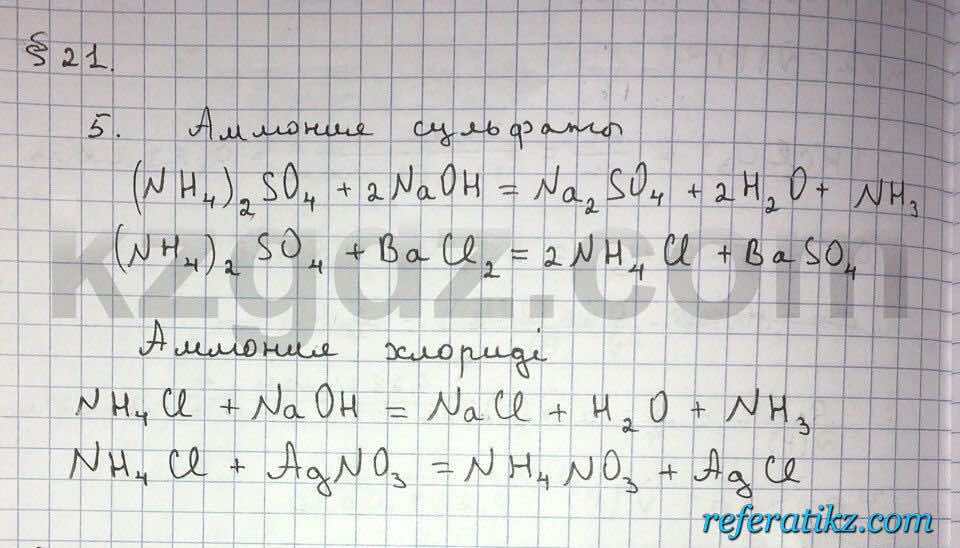 § 21.
5. Аммоний сульфаты
(NH₄)₂SO₄ + 2NaOH = Na₂SO₄ + 2H₂O + NH₃
(NH₄)₂SO₄ + BaCl₂ = 2NH₄Cl + BaSO₄
kzgdz.com
Аммоний хлориді
NH₄Cl + NaOH = NaCl + H₂O + NH₃
NH₄Cl + AgNO₃ = NH₄NO₃ + AgCl
referatikz.com